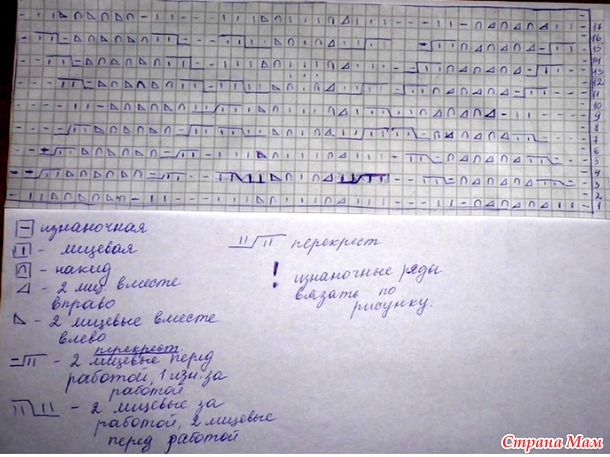 17
16
15
14
13
12
11
10
9
8
7
6
5
4
3
2
1
- изнаночная
- лицевая
- накид
- 2 лиц вместе
вправо
- 2 лицевые вместе
влево
перекрест
- 2 лицевые перед
работой, 1 изн. за
работой
- 2 лицевые за
работой, 2 лицевые
перед работой
перекрест
! изнаночные ряды
вязать по
рисунку.
Страна Мам